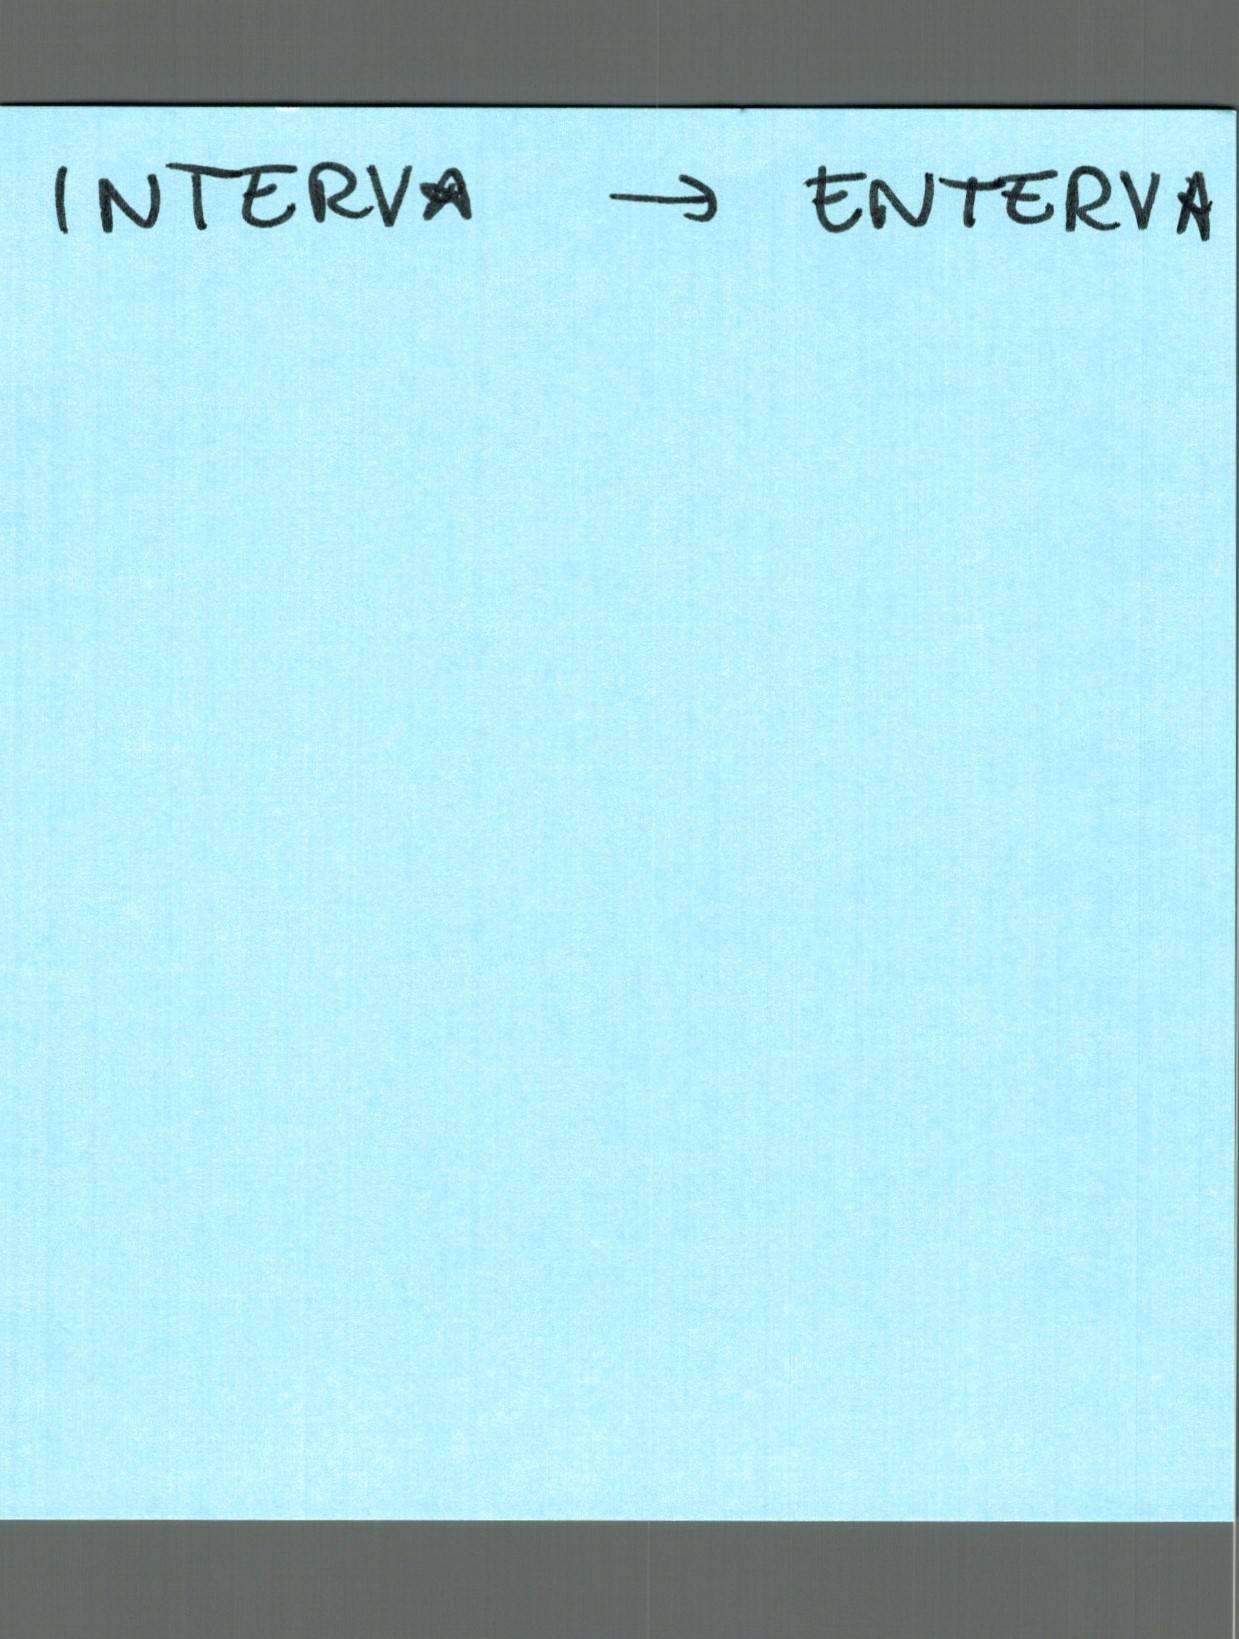 INTERVA → ENTERVA